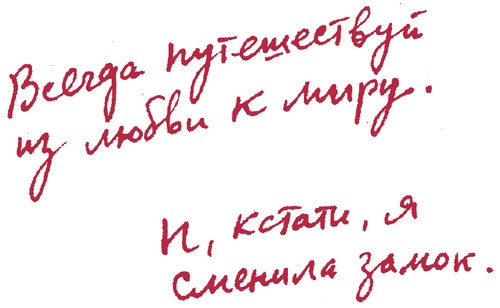 Всегда путешествуй
из любви к миру.
И, кстати, я
сменила замок.